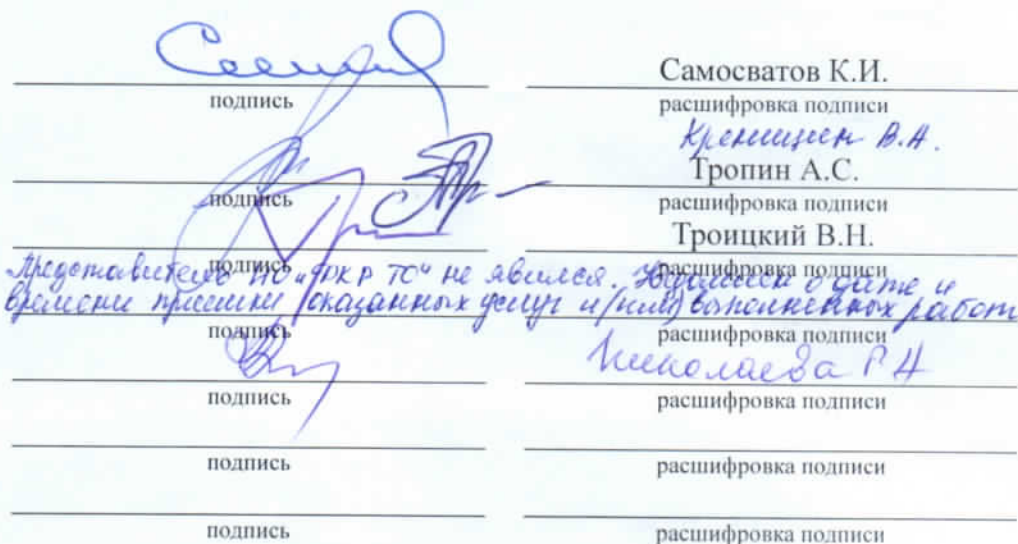 Самосватов К.И.
подпись расшифровка подписи
Креницин В.А.
Тропин А.С.
подпись расшифровка подписи
Троицкий В.Н.
подпись расшифровка подписи
Представитель НО "ФКР ТО" не явился. о дате и
времени приемки оказанных услуг и/(или) выполненных работ
подпись расшифровка подписи
Николаева Р А
подпись расшифровка подписи
подпись расшифровка подписи
подпись расшифровка подписи